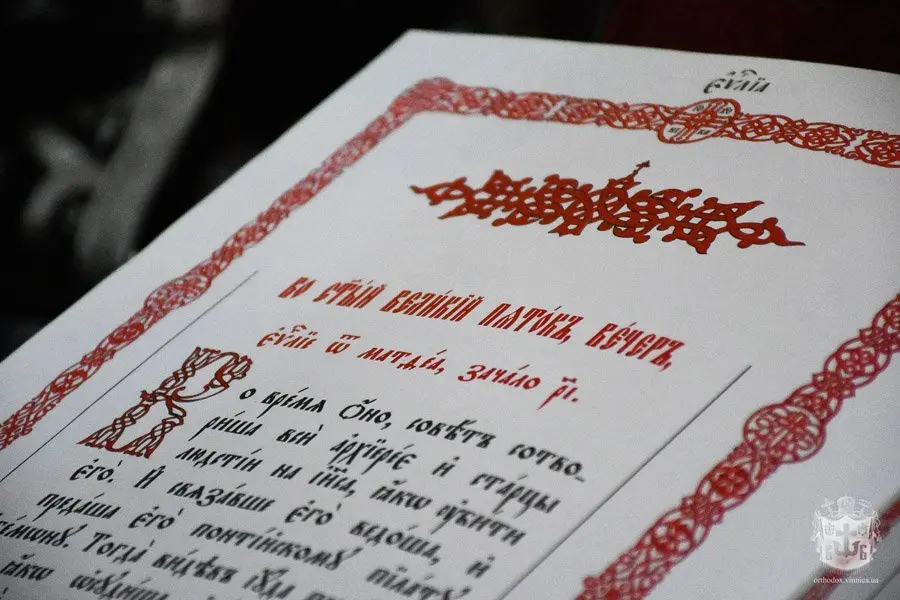 Є҆ѵⷢ҇лїа
Во ст҃ы́й вели́кїй пѧто́къ, ве́черъ,
є҆ѵⷢ҇лїе ѿ матѳе́а, зача́ло р҃і.
Во вре́мѧ ѻ҆́но, совѣ́тъ сотво-
ри́ша всѝ а҆рхїере́є и҆ ста́рцы
людсті́и на і҆и҃са, ꙗ҆́кѡ ᲂу҆би́ти
є҆го̀. И҆ свѧза́вше є҆го̀ ведо́ша, и҆
преда́ша є҆го̀ понті́йскомꙋ пїла́тꙋ
і҆ге́мѡнꙋ. Тогда̀ ви́дѣвъ і҆ꙋ́да
ꙗ҆́кѡ ѡ҆сꙋди́ша
orthodox.vinnica.ua